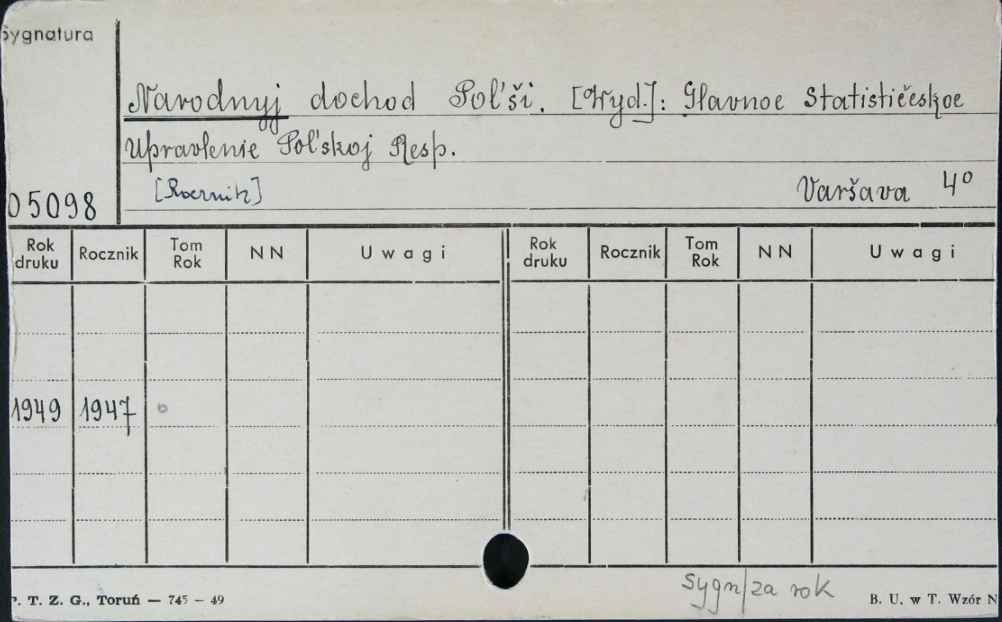 Sygnatura
Narodnyj dochod Pol'ši. [Wyd.]: Glavnoe Statističeskoe
Upravlenie Pol'skoj Resp.
[Rocznik] Varšava 4°
05098
Rok druku Rocznik Tom Rok NN Uwagi Rok druku Rocznik Tom Rok NN Uwagi
1949 1947
sygn/za rok
P. T. Z. G., Toruń — 745 - 49 B. U. w T. Wzór N